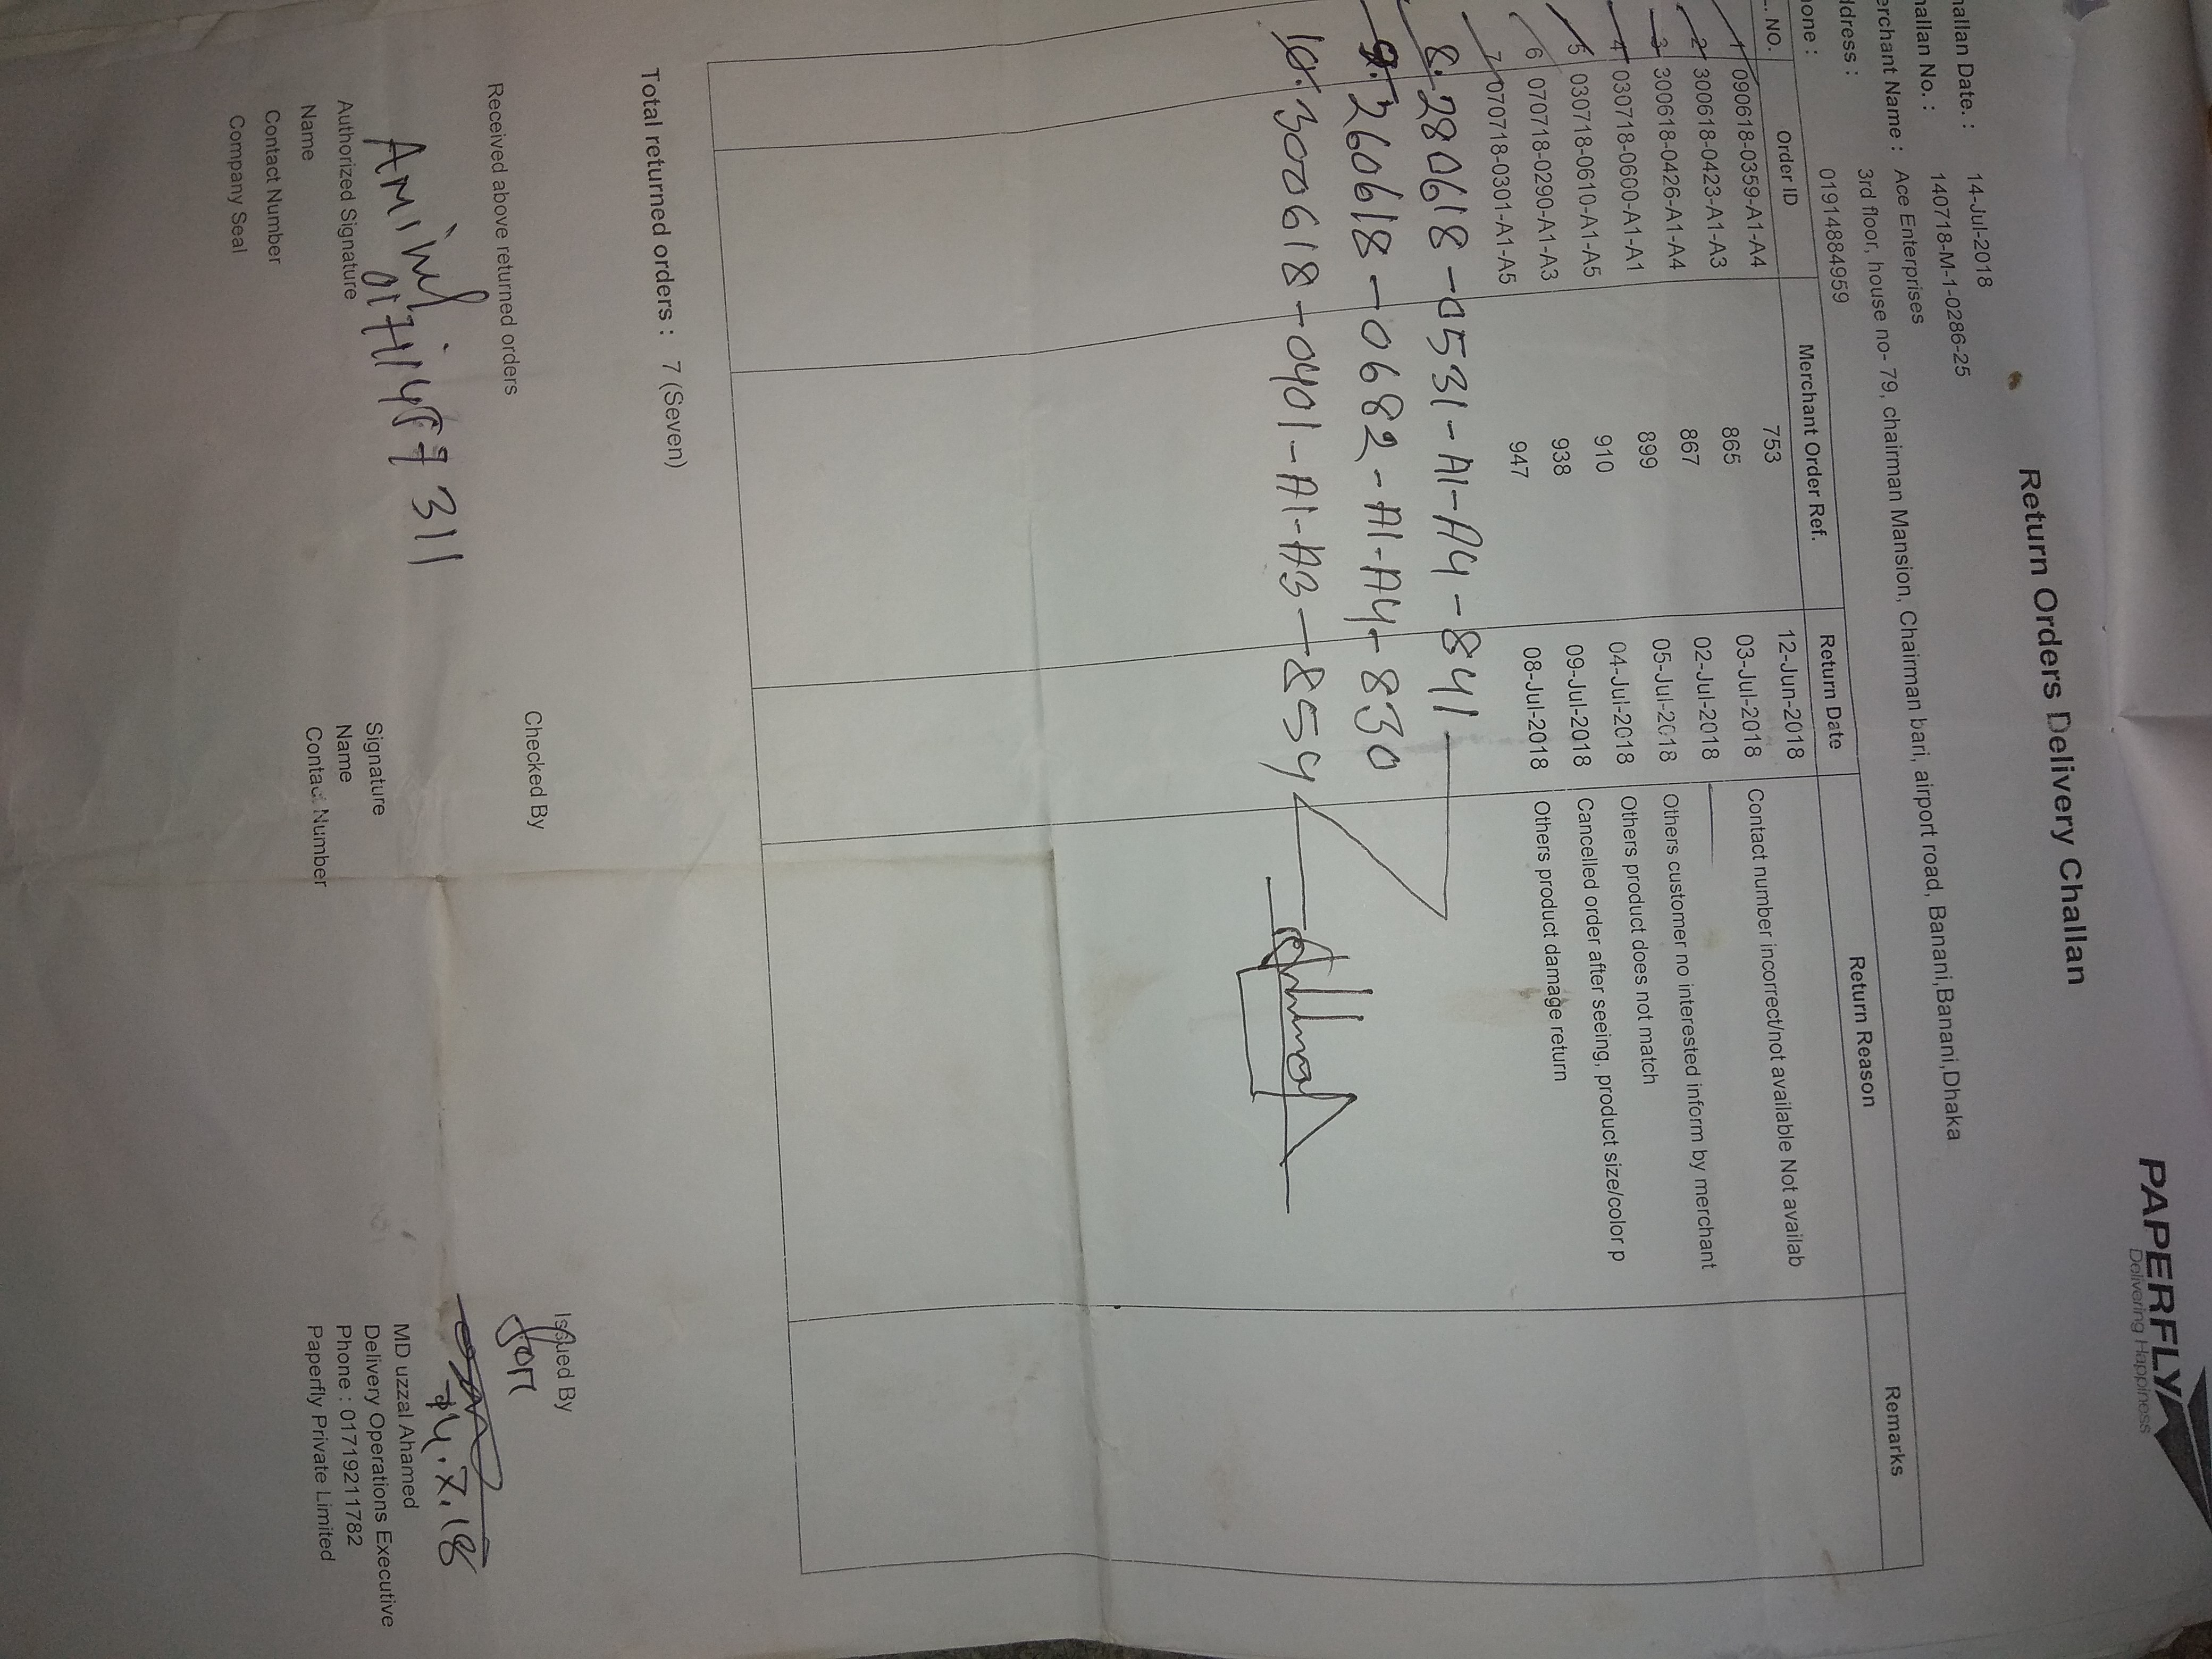 PAPERFLY
Delivering Happiness
Return Orders Delivery Challan
hallan Date. : 14-Jul-2018
hallan No. : 140718-M-1-0286-25
erchant Name : Ace Enterprises
ddress : 3rd floor, house no- 79, chairman Mansion, Chairman bari, airport road, Banani,Banani,Dhaka
one : 01914884959
L. NO. Order ID Merchant Order Ref. Return Date Return Reason Remarks
1 090618-0359-A1-A4 753 12-Jun-2018
2 300618-0423-A1-A3 865 03-Jul-2018 Contact number incorrect/not available Not availab
3 300618-0426-A1-A4 867 02-Jul-2018
4 030718-0600-A1-A1 899 05-Jul-2018 Others customer no interested inform by merchant
5 030718-0610-A1-A5 910 04-Jul-2018 Others product does not match
6 070718-0290-A1-A3 938 09-Jul-2018 Cancelled order after seeing, product size/color p
7 070718-0301-A1-A5 947 08-Jul-2018 Others product damage return
8. 280618-0531-A1-A4-841
9. 260618-0682-A1-A4-830
10. 300618-0401-A1-A3-859
Total returned orders : 7 (Seven)
Received above returned orders
Checked By
Issued By
for
Aminul
14.7.18
Authorized Signature
Name
Contact Number
Company Seal
Signature
Name
Contact Number
MD uzzal Ahamed
Delivery Operations Executive
Phone : 01719211782
Paperfly Private Limited